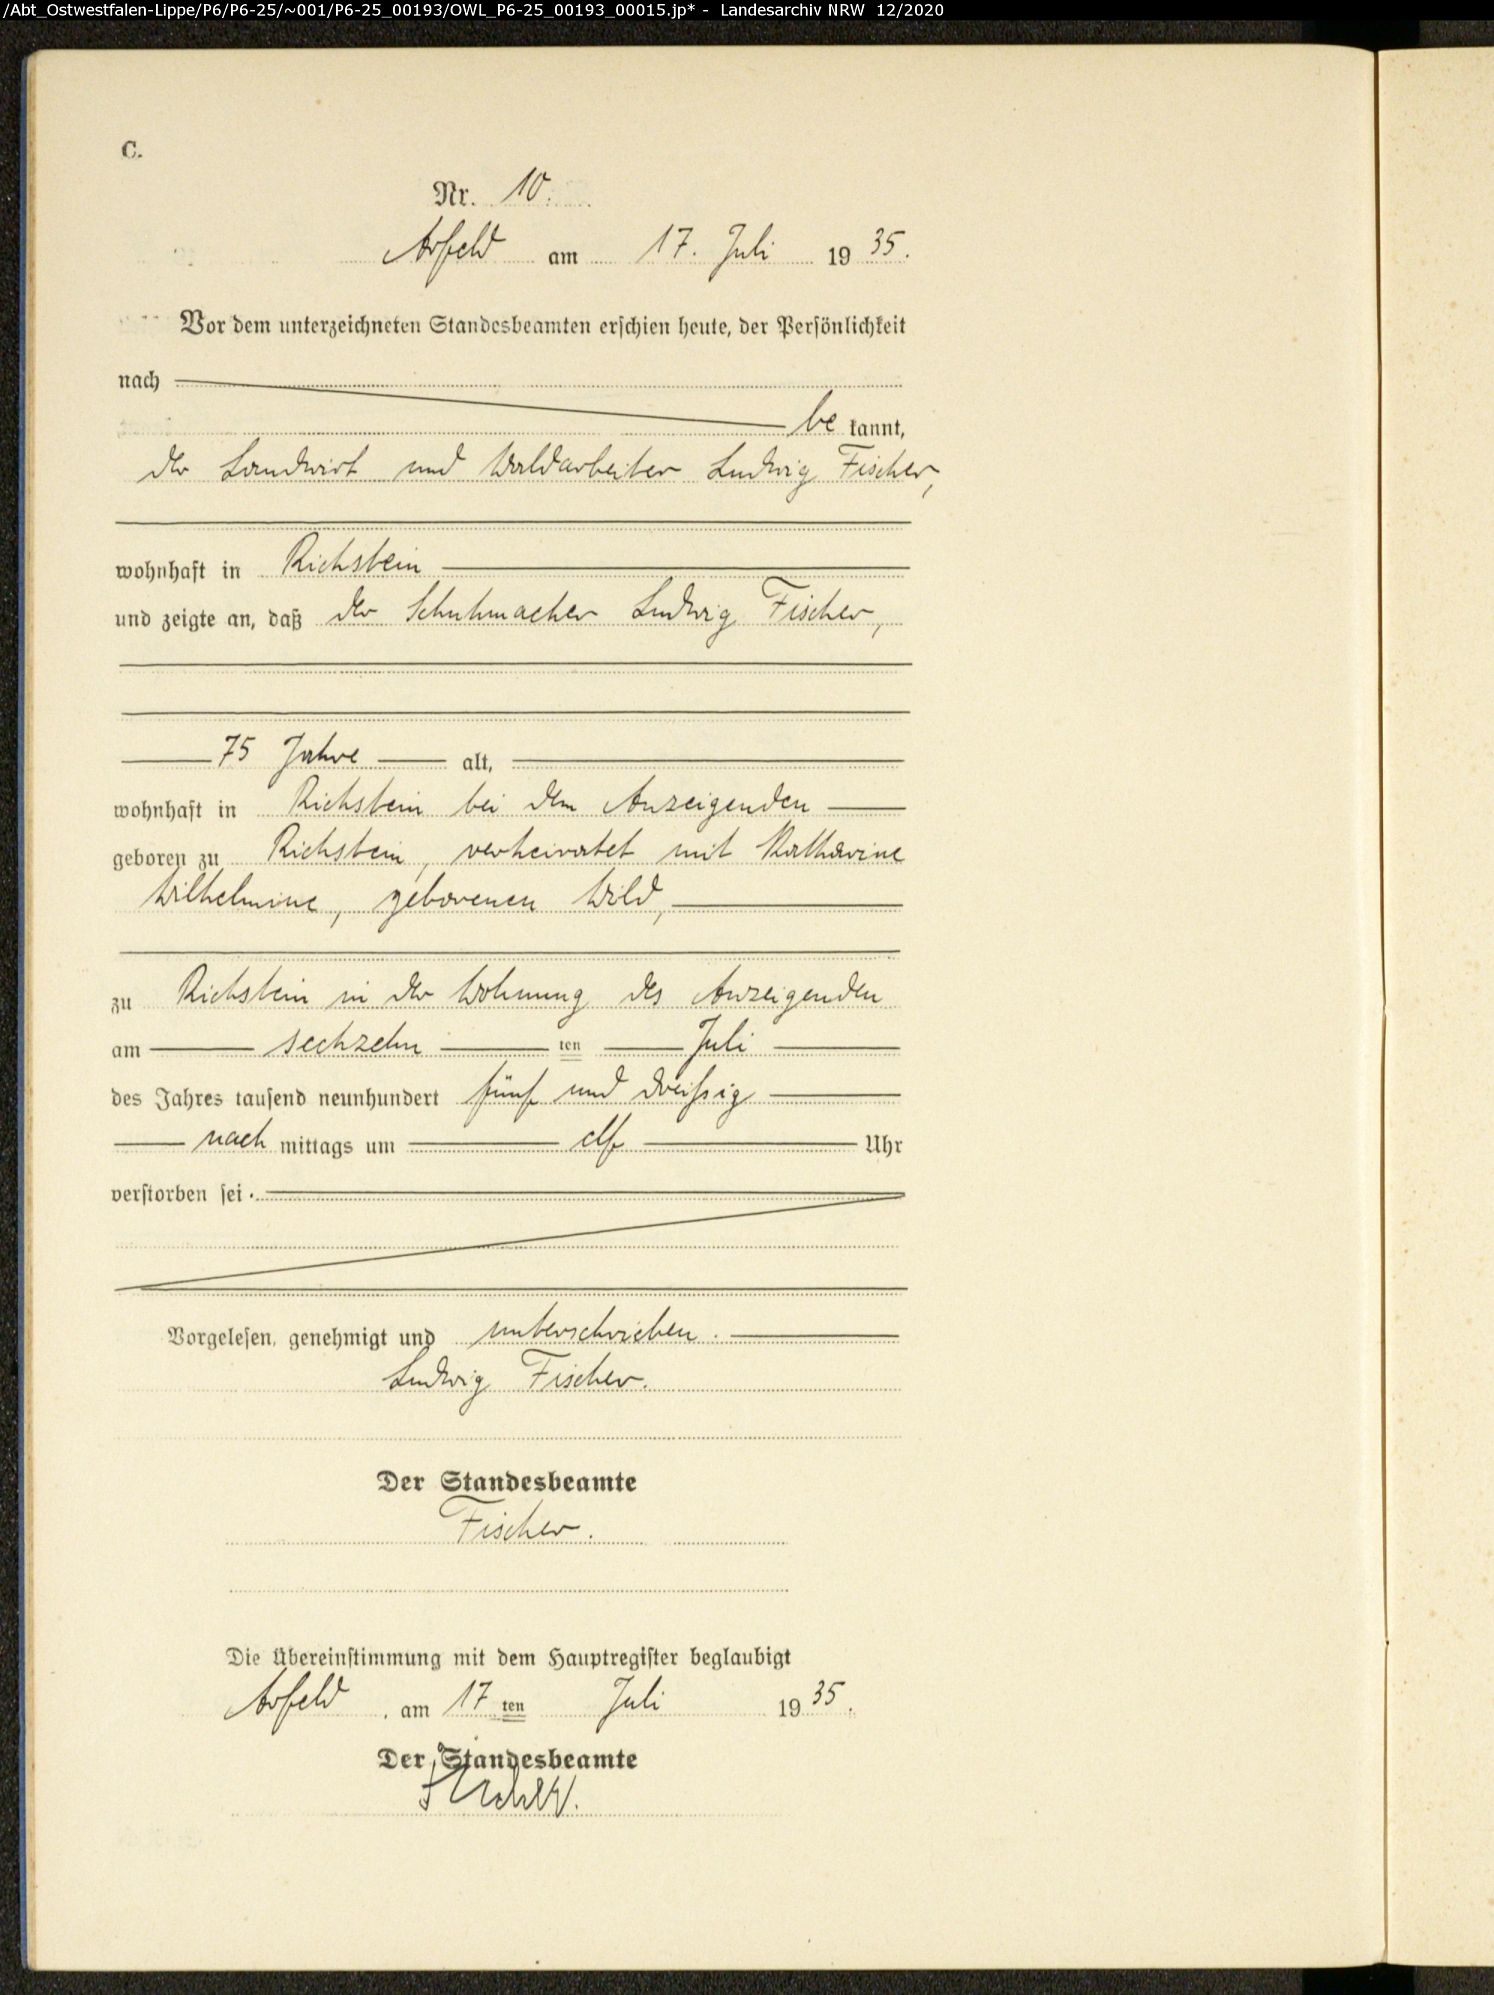 /Abt_Ostwestfalen-Lippe/P6/P6-25/~001/P6-25_00193/OWL_P6-25_00193_00015.jp* - Landesarchiv NRW 12/2020
C.
Nr. 10.
Arfeld am 17. Juli 1935.
Vor dem unterzeichneten Standesbeamten erschien heute, der Persönlichkeit
nach
be kannt,
der Landwirt und Waldarbeiter Ludwig Fischer,
wohnhaft in Richstein
und zeigte an, daß der Schuhmacher Ludwig Fischer,
75 Jahre alt,
wohnhaft in Richstein bei dem Anzeigenden
geboren zu Richstein, verheiratet mit Katharine
Wilhelmine, geborenen Wild,
zu Richstein in der Wohnung des Anzeigenden
am sechzehn ten Juli
des Jahres tausend neunhundert fünf und dreißig
nach mittags um elf Uhr
verstorben sei.
Vorgelesen, genehmigt und unterschrieben.
Ludwig Fischer.
Der Standesbeamte
Fischer.
Die Übereinstimmung mit dem Hauptregister beglaubigt
Arfeld, am 17 ten Juli 1935.
Der Standesbeamte
Fischer.